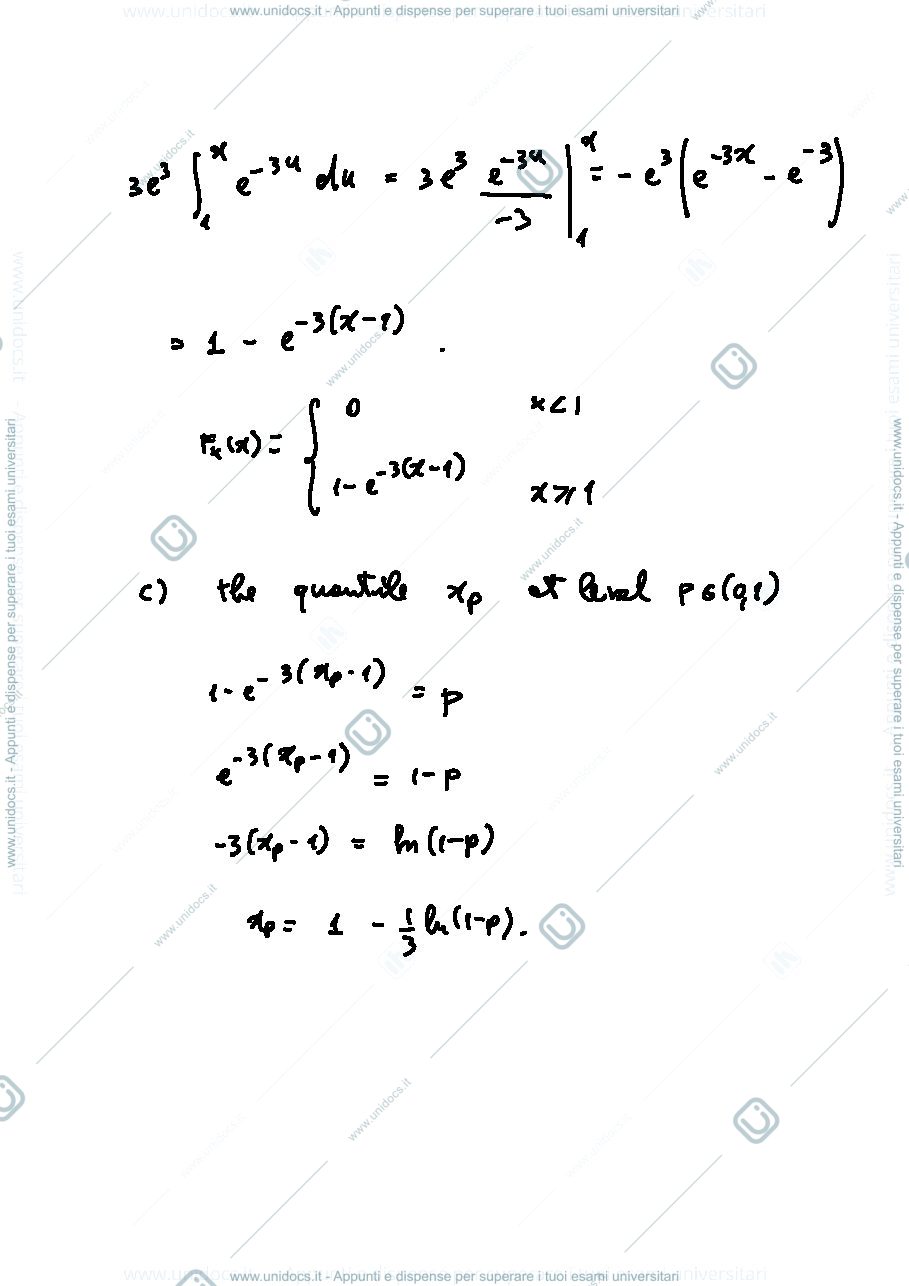 www.unidocs.it - Appunti e dispense per superare i tuoi esami universitari
3e³ ∫₁ˣ e^(-3u) du = 3e³ e^(-3u)/-3 |₁ˣ = - e³ (e^(-3x) - e^(-3))
= 1 - e^(-3(x-1)) .
Fₓ(x) = { 0 x<1
1 - e^(-3(x-1)) x⩾1
c) the quantile xₚ at level p∈(0,1)
1 - e^(-3(xₚ-1)) = p
e^(-3(xₚ-1)) = 1-p
-3(xₚ-1) = ln(1-p)
xₚ = 1 - 1/3 ln(1-p).
www.unidocs.it - Appunti e dispense per superare i tuoi esami universitari
www.unidocs.it - Appunti e dispense per superare i tuoi esami universitari
www.unidocs.it - Appunti e dispense per superare i tuoi esami universitari
www.unidocs.it
www.unidocs.it
www.unidocs.it
www.unidocs.it
www.unidocs.it
www.unidocs.it